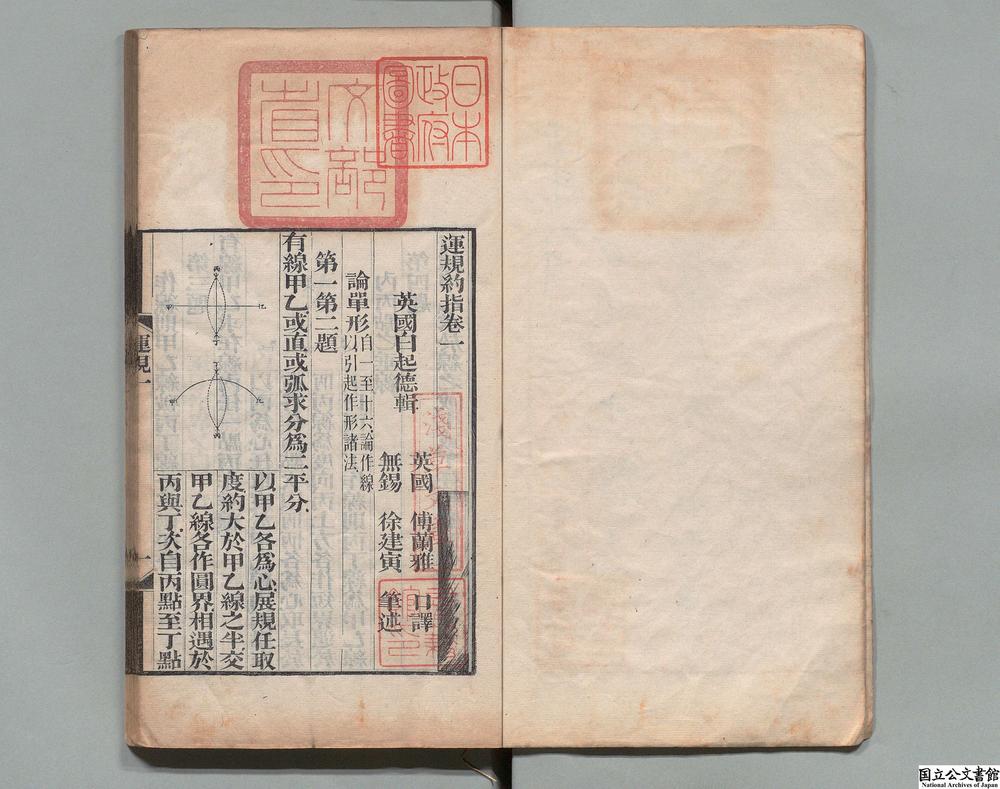 運規約指卷一
英國白起德輯
英國 傅蘭雅 口譯
無錫 徐建寅 筆述
論單形自一至十六論作線以引起作形諸法
第一第二題
有線甲乙或直或弧求分爲二平分
以甲乙各爲心展規任取
度約大於甲乙線之半交
甲乙線各作圓界相遇於
丙與丁次自丙點至丁點
運規一
一
日本
政府
圖書
文部
省印
国立公文書館
National Archives of Japan